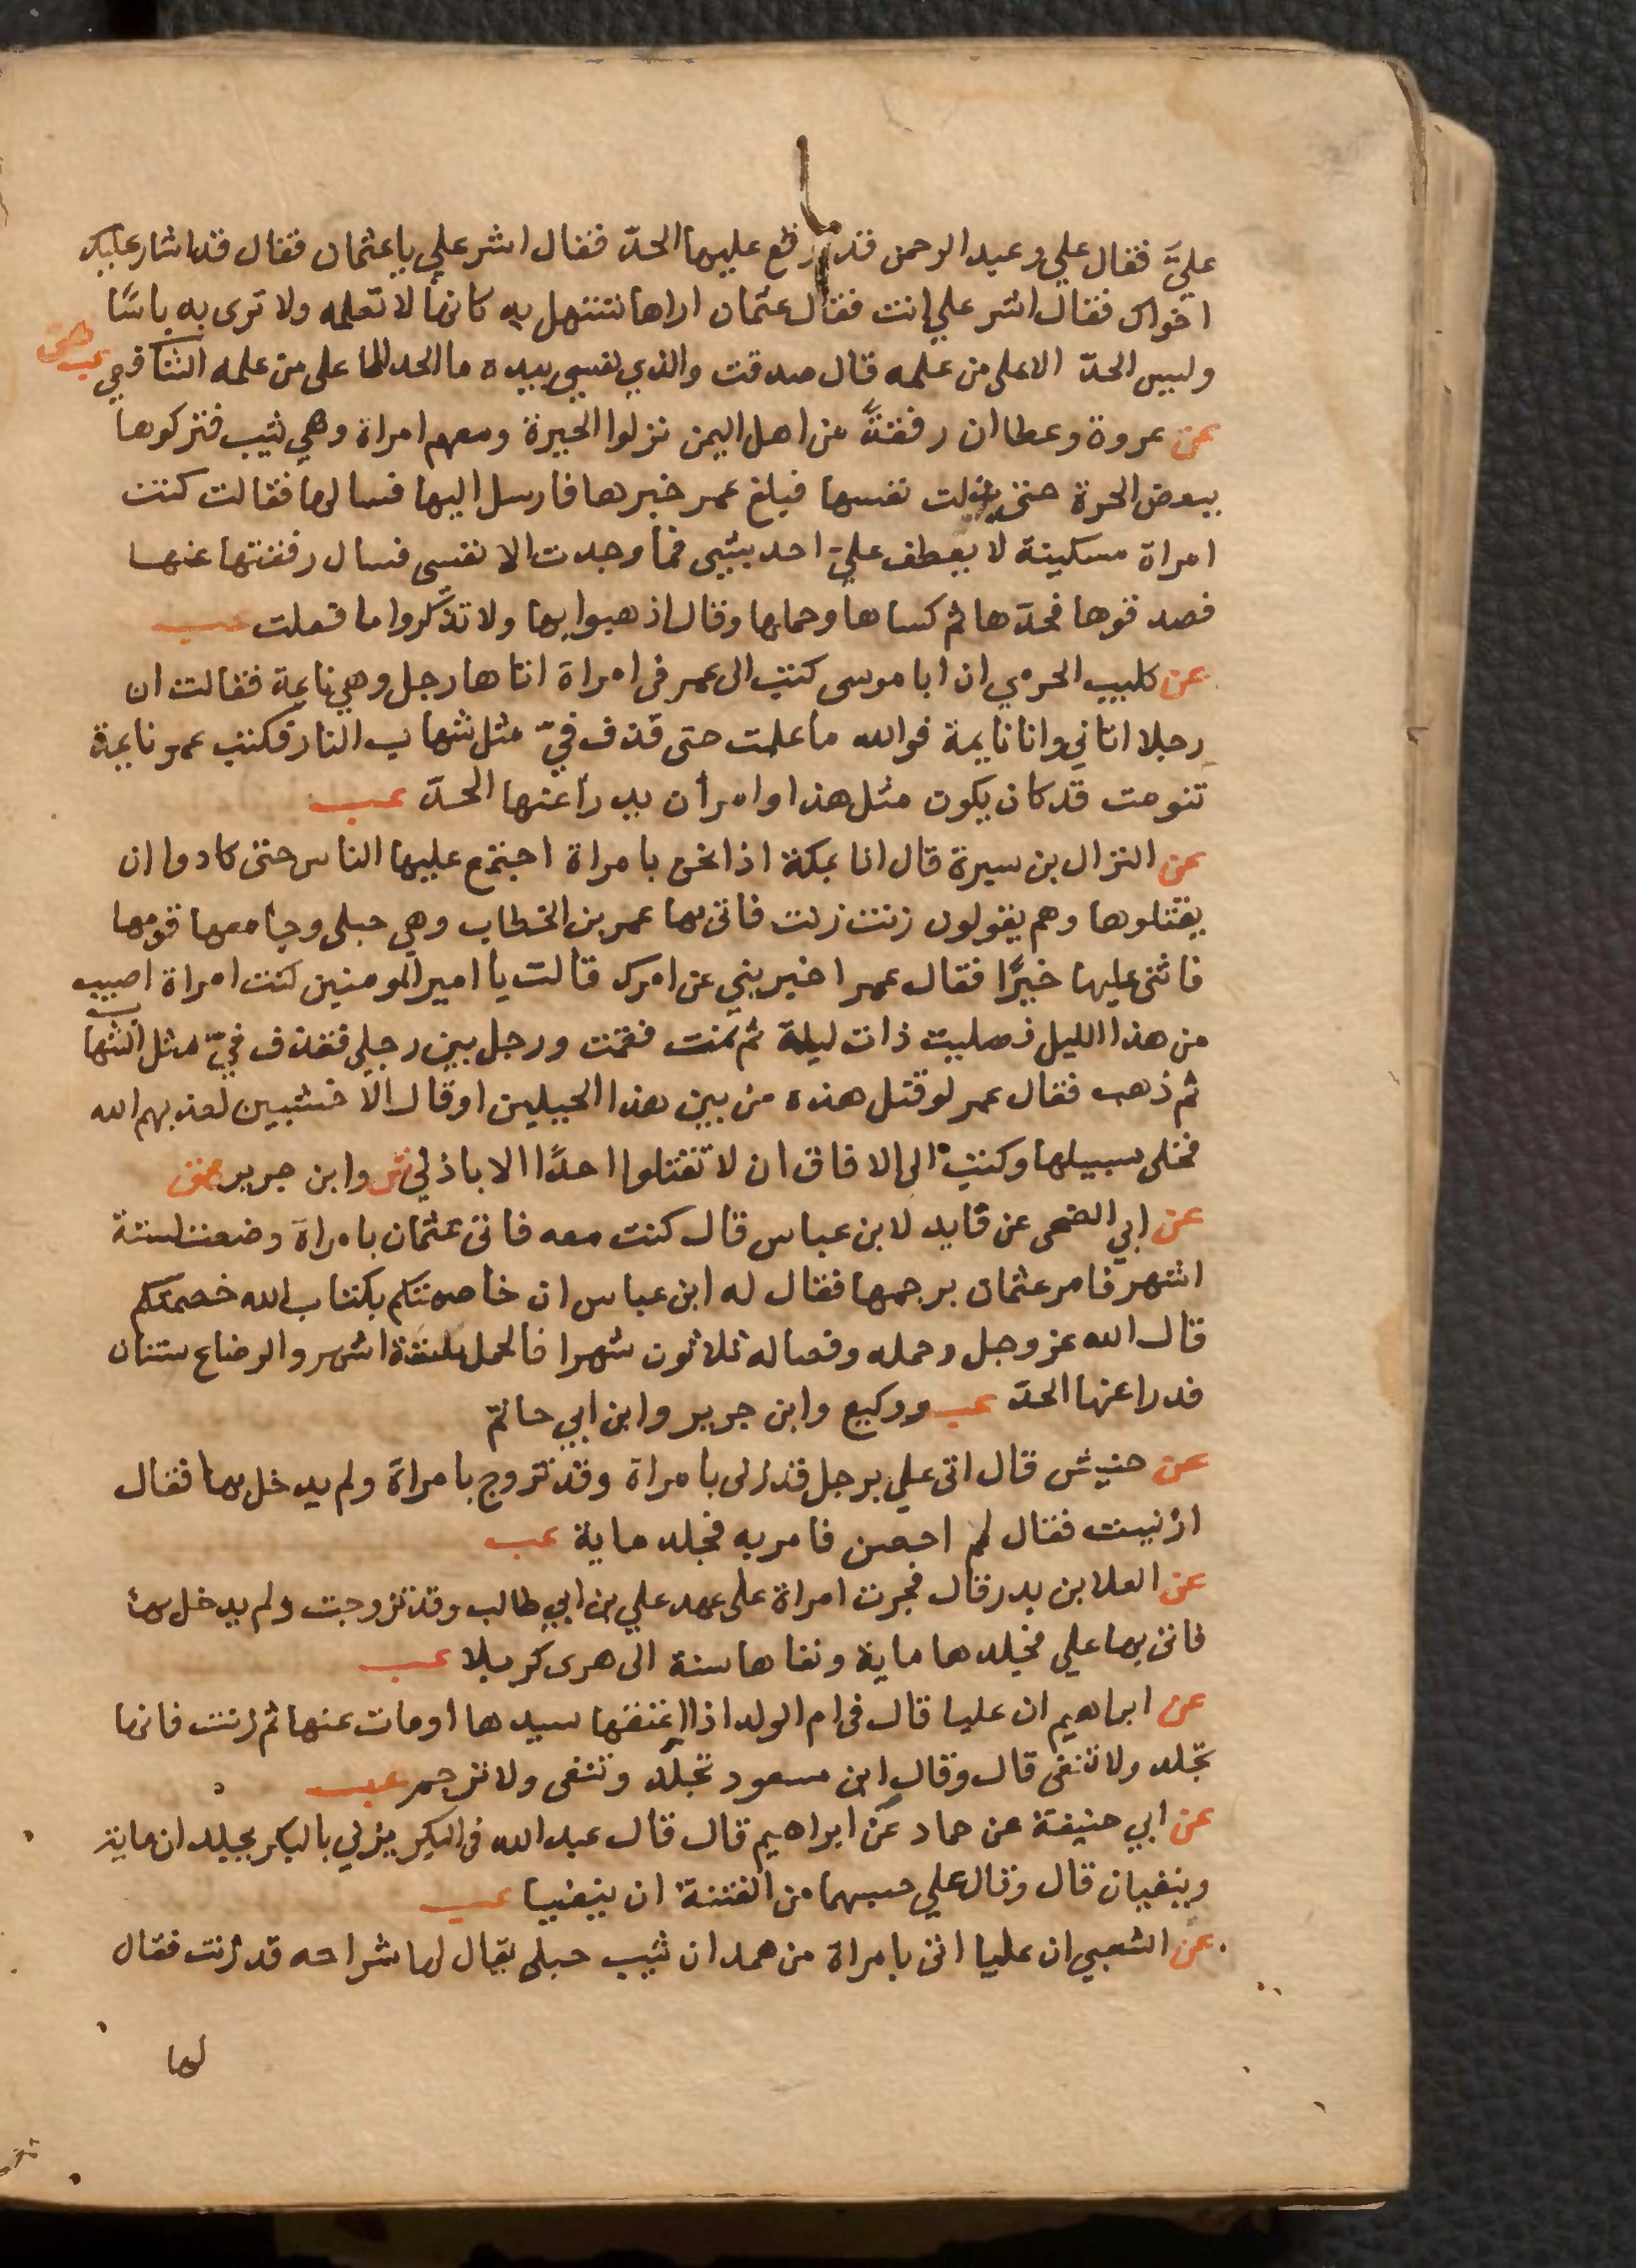 عليَّ فقال علي وعبد الرحمن قد وقع عليها الحدّ فقال اشر علي ياعثمان فقال قد اشار عليك
اخواك فقال اشر علي انت فقال عثمان اراها تستهل به كانها لا تعلمه ولا ترى به باسًا
وليس الحدّ الا على من علمه قال صدقت والذي نفسي بيده ما الحد الا على من علمه الشافعي عب هق
عن عروة وعطا ان رفقةً من اهل اليمن نزلوا الحيرة ومعهم امراة وهي ثيب فتركوها
ببعض الحرة حتى بذلت نفسها فبلغ عمر خبرها فارسل اليها فسالها فقالت كنت
امراة مسكينة لا يعطف عليّ احد بشيى فما وجدت الا نفسى فسال رفقتها عنها
فصدقوها فحدّها ثم كساها وحملها وقال اذهبوا بها ولا تذكروا ما فعلت عب
عن كليب الجرمي ان ابا موسى كتب الى عمر فى امراة اتاها رجل وهي نايمة فقالت ان
رجلا اتاني وانا نايمة فوالله ما علمت حتى قذف فيّ مثل شهاب النار فكتب عمر نايمة
تنومت قد كان يكون مثل هذا وامر أن يدرأ عنها الحدّ عب
عن النزال بن سبرة قال انا بمكة اذا نحن بامراة اجتمع عليها الناس حتى كادوا ان
يقتلوها وهم يقولون زنت زنت فاتى بها عمر بن الخطاب وهي حبلى وجا معها قومها
فاثنى عليها خيرًا فقال عمر اخبريني عن امرك قالت يا امير المومنين كنت امراة اصيب
من هذا الليل فصليت ذات ليلة ثم نمت فقمت ورجل بين رجلي فقذف فيّ مثل الشهاب
ثم ذهب فقال عمر لو قتل هذه من بين هذا الجبلين او قال الاخشبين لعذبهم الله
فخلى سبيلها وكتب الى الافاق ان لا تقتلوا احدًا الا باذني ش وابن جرير هق
عن ابي الضحى عن قايد لابن عباس قال كنت معه فاتى عثمان بامراة وضعت لستة
اشهر فامر عثمان برجمها فقال له ابن عباس ان خاصمتكم بكتاب الله خصمتكم
قال الله عز وجل وحمله وفصاله ثلاثون شهرا فالحمل ستة اشهر والرضاع سنتان
فدرا عنها الحدّ عب ووكيع وابن جرير وابن ابي حاتم
عن حنيش قال اتى علي برجل قد زنى بامراة وقد تزوج بامراة ولم يدخل بها فقال
ازنيت فقال لم احصن فامر به فجلد ماية عب
عن العلا بن بدر قال فجرت امراة على عهد علي بن ابي طالب وقد تزوجت ولم يدخل بها
فاتى بها علي فجلدها ماية ونفاها سنة الى هرى كربلا عب
عن ابراهيم ان عليا قال فى ام الولد اذا اعتقها سيدها او مات عنها ثم زنت فانها
تجلد ولا تنفى قال وقال ابن مسعود تجلد وتنفى ولا ترجم عب
عن ابي حنيفة عن حماد عن ابراهيم قال قال عبد الله فى البكر يزني بالبكر يجلدان ماية
وينفيان قال وقال علي حسبهما من الفتنة ان ينفيا عب
عن الشعبي ان عليا اتى بامراة من همدان ثيب حبلى يقال لها شراحه قد زنت فقال
لها